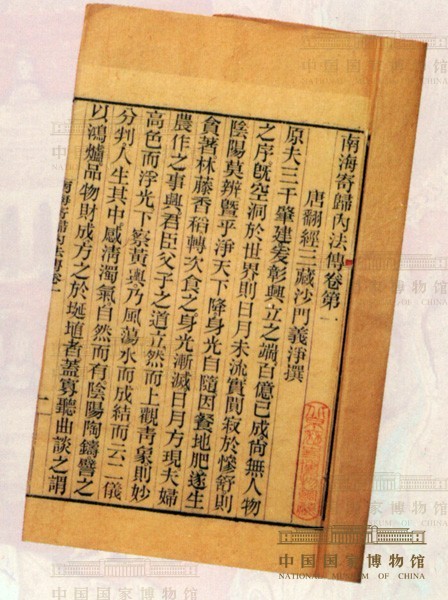 南海寄歸內法傳卷第一
唐翻經三藏沙門義淨撰
原夫三千肇建爰彰興立之端百億已成尙無人物
之序旣空洞於世界則日月未流實闃寂於慘舒則
陰陽莫辨曁乎淨天下降身光自隨因餐地肥遂生
貪著林藤香稻轉次食之身光漸滅日月方現夫婦
農作之事興君臣父子之道立然而上觀青象則妙
高色而浮光下察黃輿乃風蕩水而成結而云二儀
分判人生其中感淸濁氣自然而有陰陽陶鑄譬之
以鴻爐品物財成方之於埏埴者蓋寡聽曲談之謂
南海寄歸內法傳卷一
一
中国国家博物馆
NATIONAL MUSEUM OF CHINA